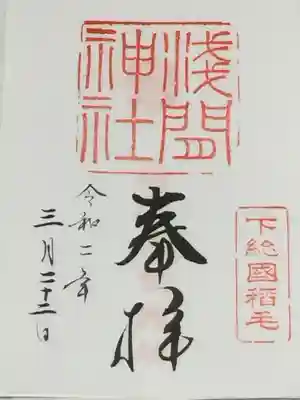 浅間
神社
下総國稲毛
奉拝
令和二年
三月二十二日